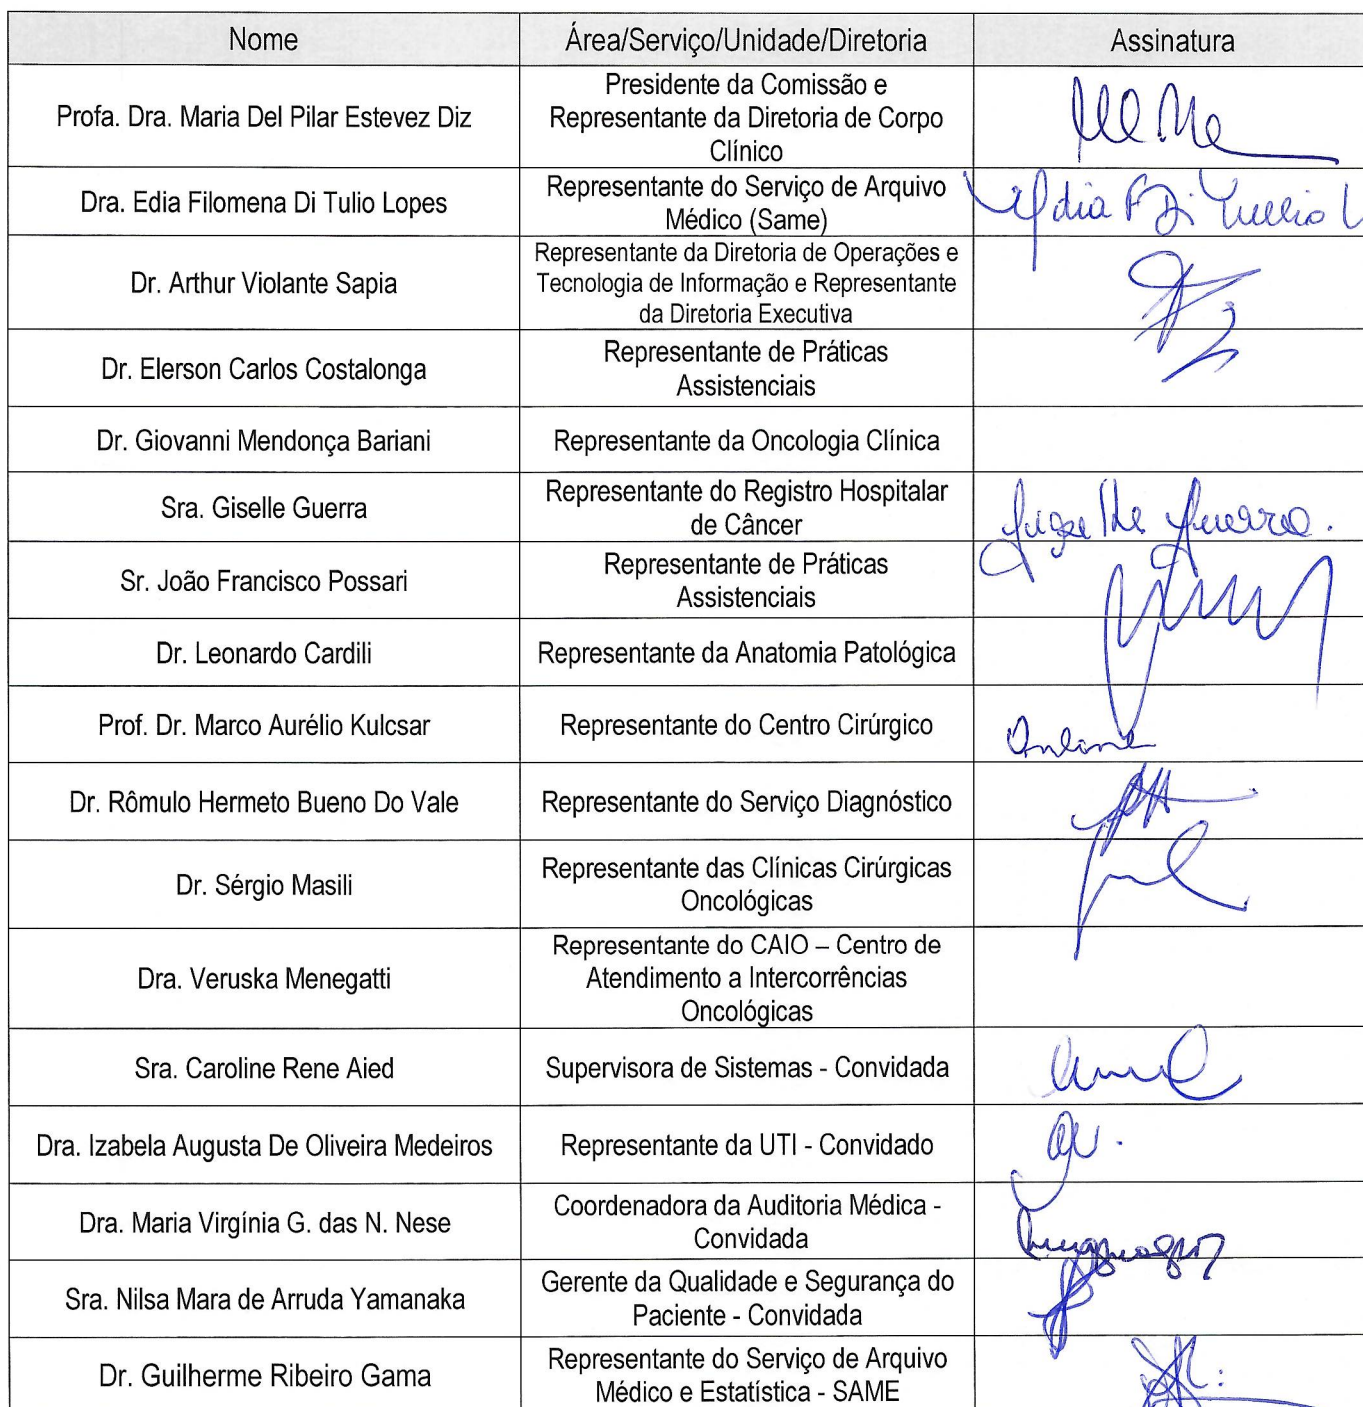 Nome Área/Serviço/Unidade/Diretoria Assinatura
Profa. Dra. Maria Del Pilar Estevez Diz
Presidente da Comissão e
Representante da Diretoria de Corpo
Clínico
Dra. Edia Filomena Di Tulio Lopes
Representante do Serviço de Arquivo
Médico (Same)
Dr. Arthur Violante Sapia
Representante da Diretoria de Operações e
Tecnologia de Informação e Representante
da Diretoria Executiva
Dr. Elerson Carlos Costalonga
Representante de Práticas
Assistenciais
Dr. Giovanni Mendonça Bariani
Representante da Oncologia Clínica
Sra. Giselle Guerra
Representante do Registro Hospitalar
de Câncer
Sr. João Francisco Possari
Representante de Práticas
Assistenciais
Dr. Leonardo Cardili
Representante da Anatomia Patológica
Prof. Dr. Marco Aurélio Kulcsar
Representante do Centro Cirúrgico
Online
Dr. Rômulo Hermeto Bueno Do Vale
Representante do Serviço Diagnóstico
Dr. Sérgio Masili
Representante das Clínicas Cirúrgicas
Oncológicas
Dra. Veruska Menegatti
Representante do CAIO – Centro de
Atendimento a Intercorrências
Oncológicas
Sra. Caroline Rene Aied
Supervisora de Sistemas - Convidada
Dra. Izabela Augusta De Oliveira Medeiros
Representante da UTI - Convidado
Dra. Maria Virgínia G. das N. Nese
Coordenadora da Auditoria Médica -
Convidada
Sra. Nilsa Mara de Arruda Yamanaka
Gerente da Qualidade e Segurança do
Paciente - Convidada
Dr. Guilherme Ribeiro Gama
Representante do Serviço de Arquivo
Médico e Estatística - SAME